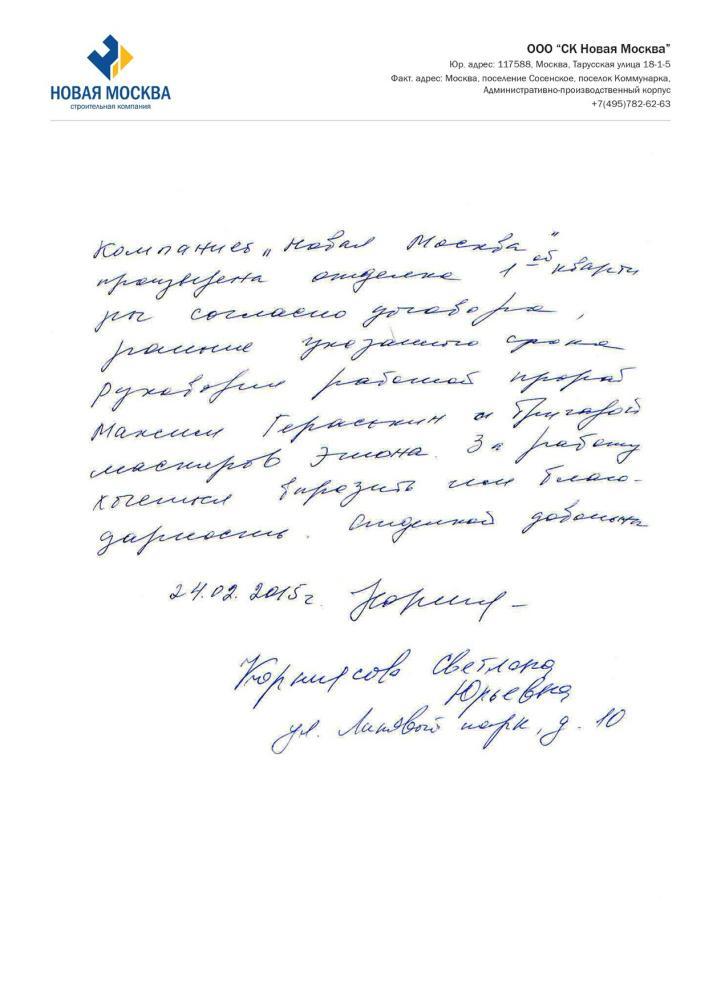 НОВАЯ МОСКВА
строительная компания
ООО “СК Новая Москва”
Юр. адрес: 117588, Москва, Тарусская улица 18-1-5
Факт. адрес: Москва, поселение Сосенское, поселок Коммунарка,
Административно-производственный корпус
+7(495)782-62-63
Компанией „Новая Москва"
произведена отделка 1-ой кварти
ры согласно договора,
раньше указанного срока
Руководил работой прораб
Максим Гераськин и бригадой
мастеров Эшона. За работу
хочется выразить им благо-
дарность. Отделкой довольна
24.02.2015г.
Светлана
Юрьевна
ул. Липовый парк, д. 10